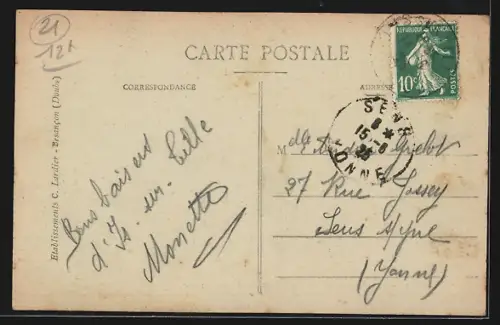 21
12f
CARTE POSTALE
CORRESPONDANCE
ADRESSE
REPUBLIQUE FRANÇAISE
10c
POSTES
SENS
8 *
15-6
26
YONNE
Etablissements C. Lardier - Besançon (Doubs)
Bons baisers
d'Is. sur. Tille
Monette
Mdlle Griolot
27 Rue Jossey
Sens s/Yne
(Yonne)